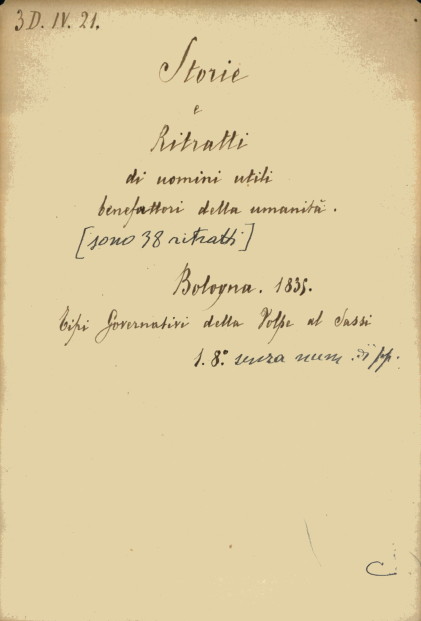 3 D. IV. 21.
Storie
e
Ritratti
di uomini utili
benefattori della umanità.
[sono 38 ritratti]
Bologna. 1835.
Tipi Governativi della Volpe al Sassi
1. 8.° senza num. di pp.
C